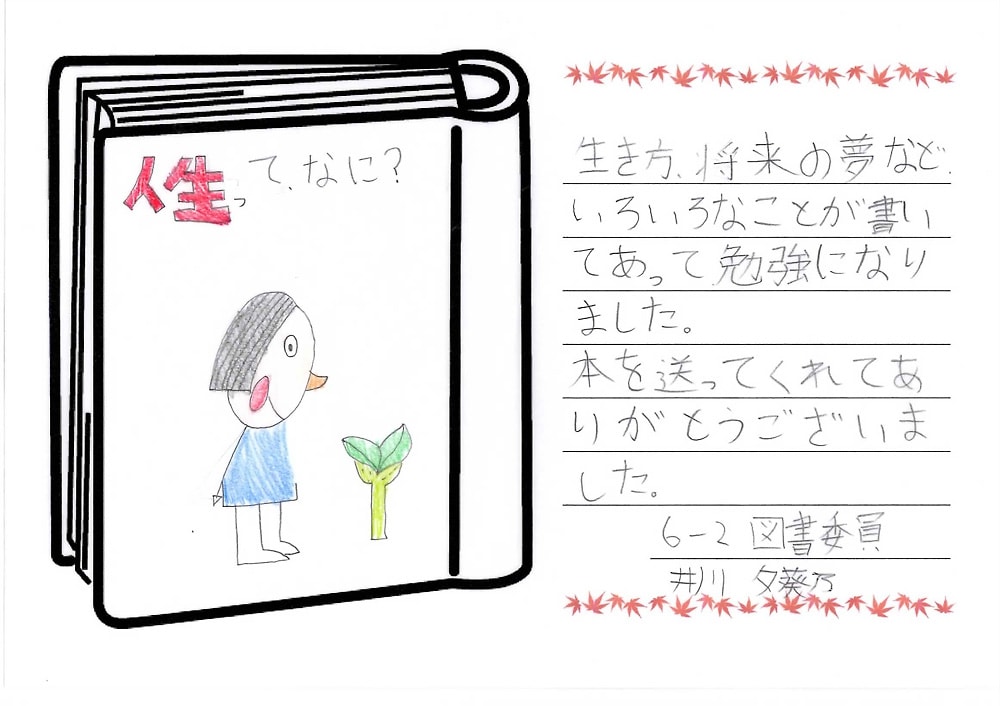 人生って、なに?
生き方、将来の夢など、
いろいろなことが書い
てあって勉強になり
ました。
本を送ってくれてあ
りがとうございま
した。
6-2 図書委員
井川 夕葵乃